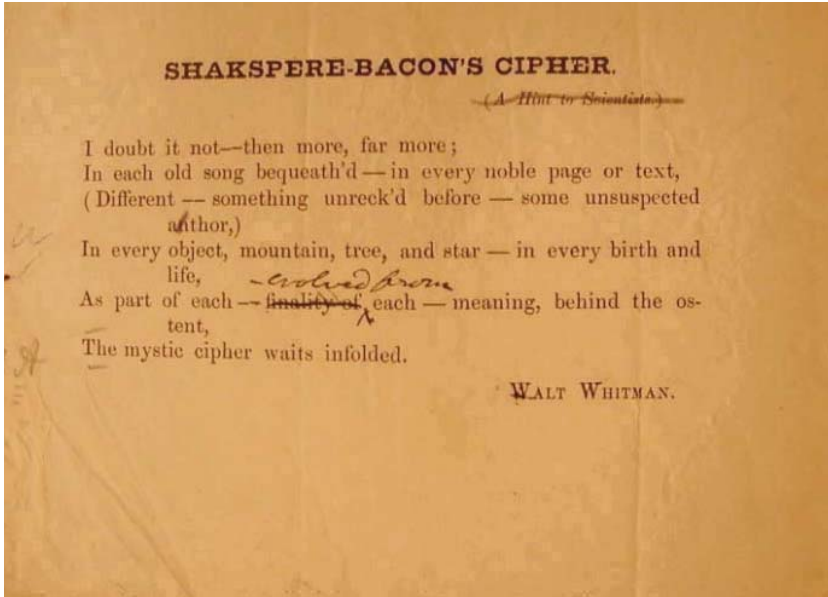 SHAKSPERE-BACON'S CIPHER.
(A Hint to Scientists.)
I doubt it not—then more, far more;
In each old song bequeath'd — in every noble page or text,
(Different — something unreck'd before — some unsuspected
author,)
In every object, mountain, tree, and star — in every birth and
life,
—evolved from
As part of each — finality of each — meaning, behind the os-
tent,
The mystic cipher waits infolded.
WALT WHITMAN.